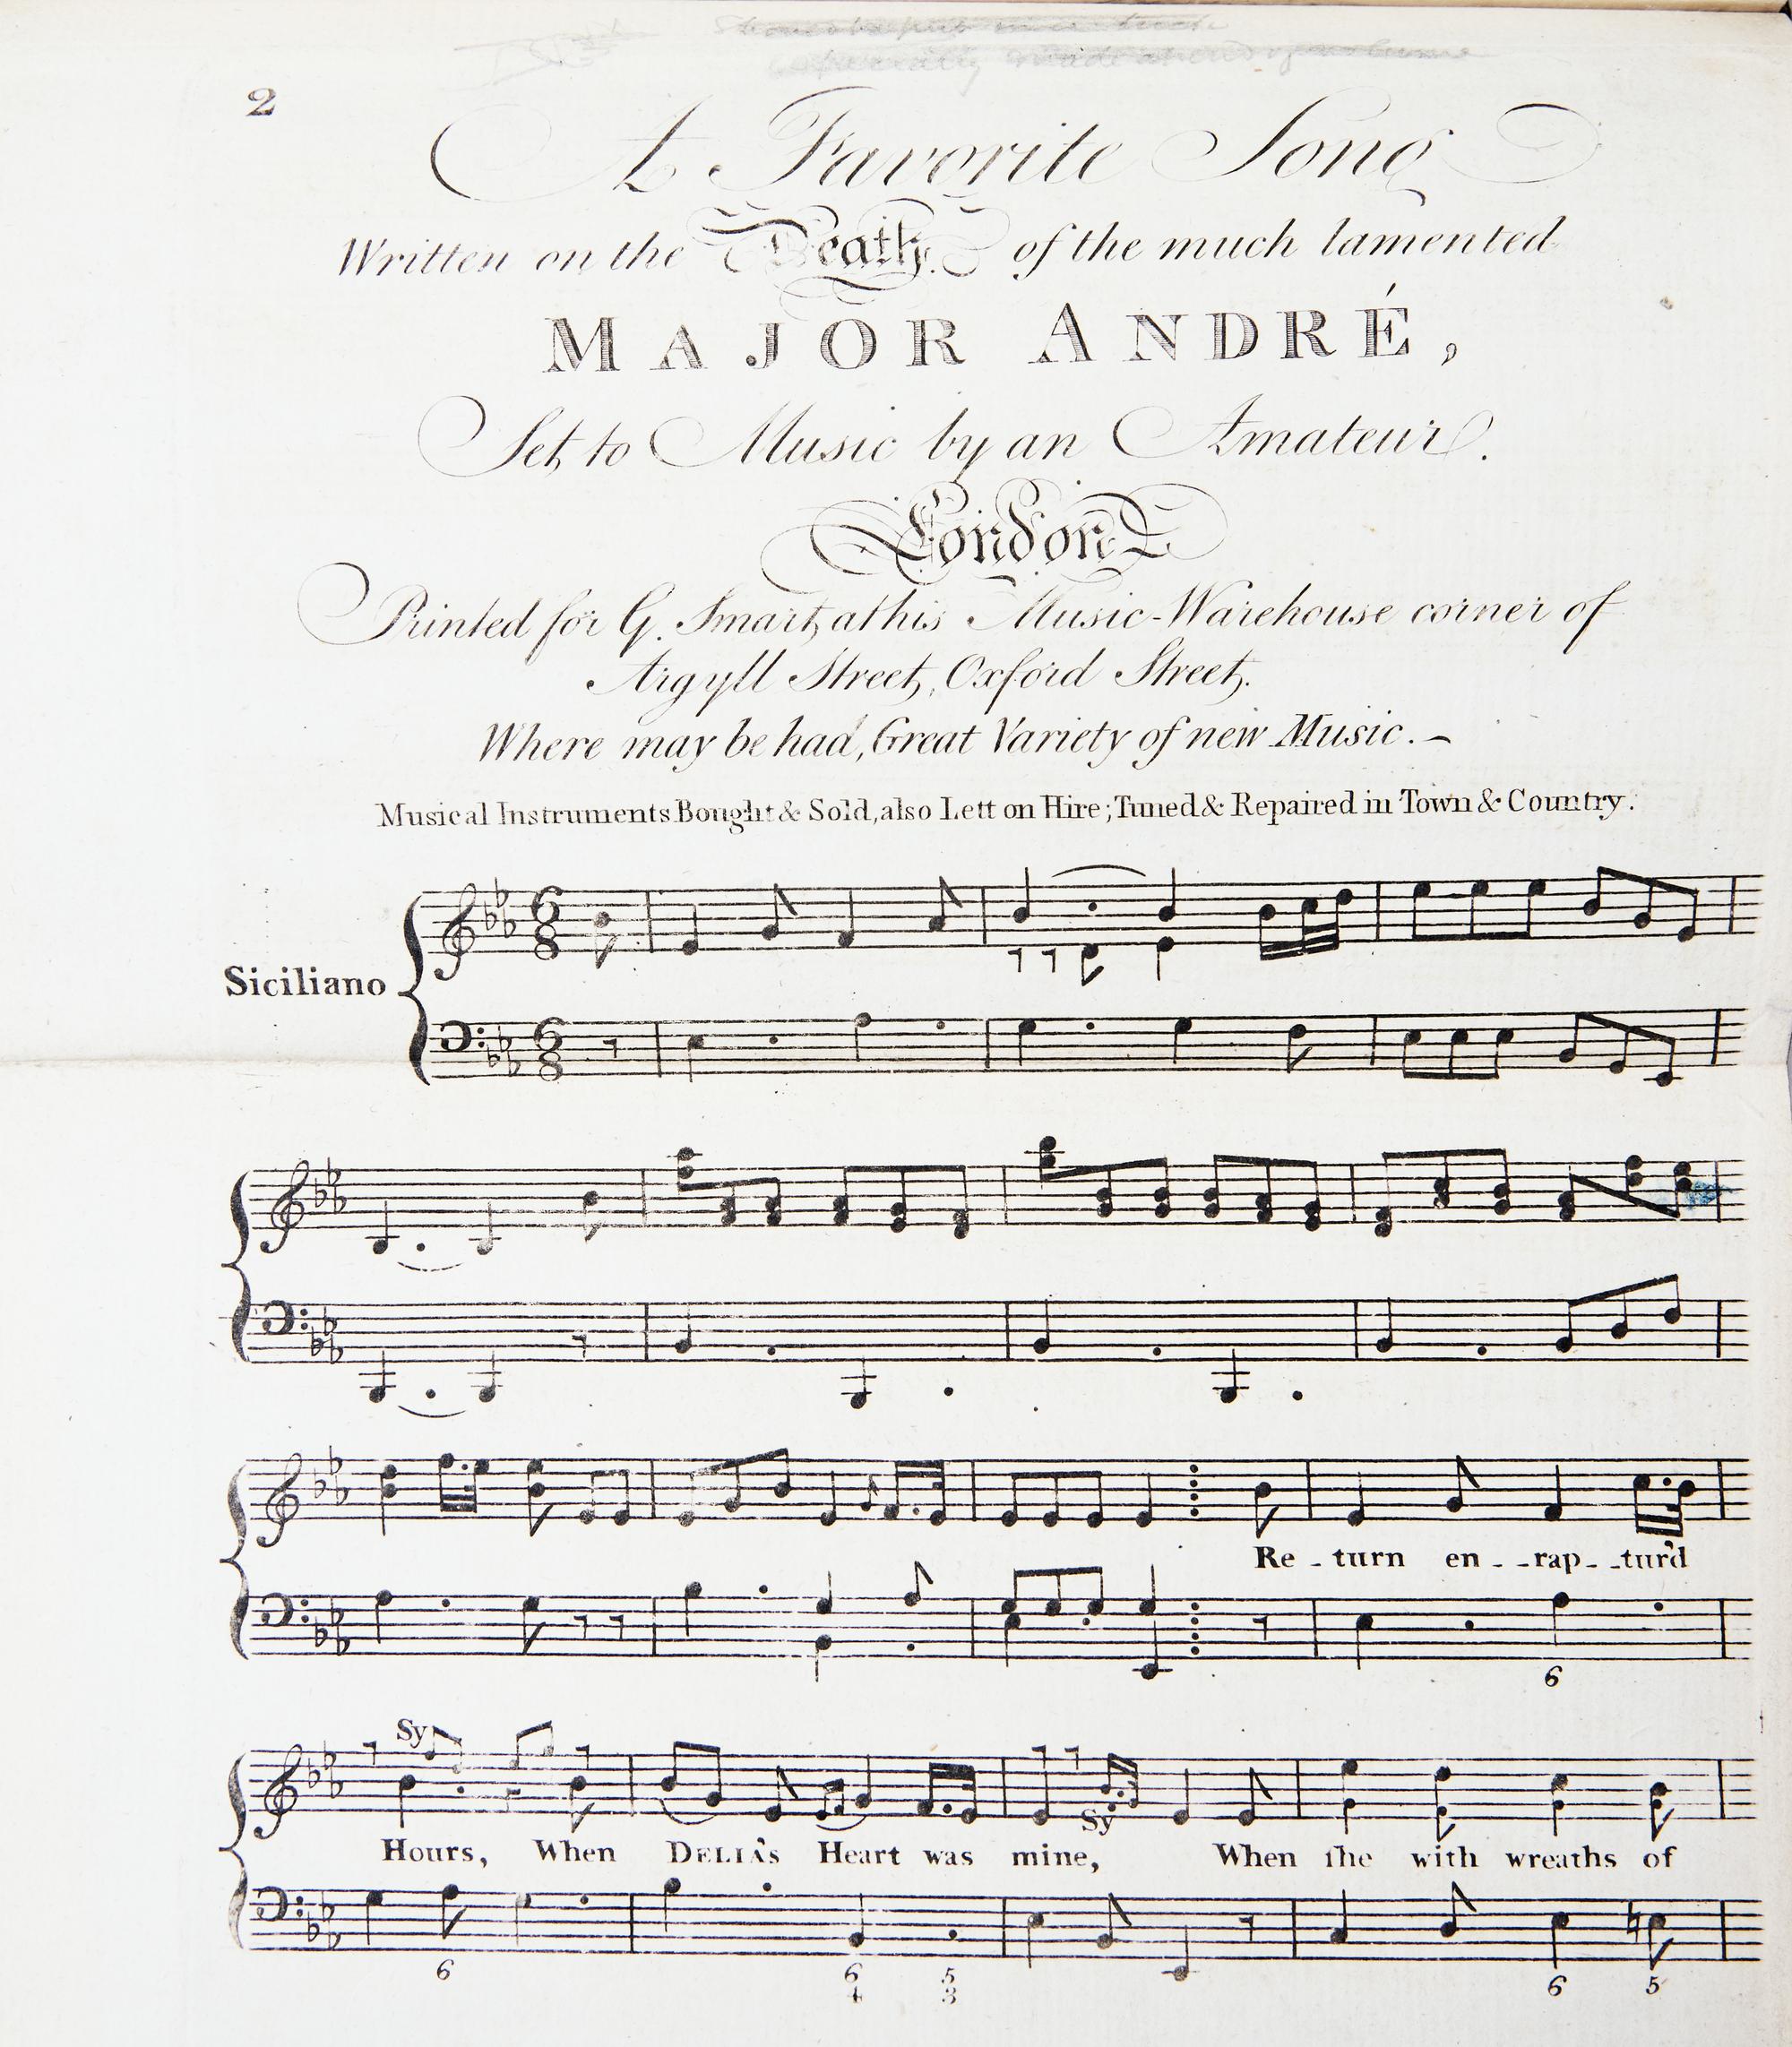 2
A Favorite Song
Written on the Death of the much lamented
MAJOR ANDRÉ,
Set to Music by an Amateur.
London
Printed for G. Smart, at his Music-Warehouse corner of
Argyll Street, Oxford Street.
Where may be had, Great Variety of new Music.
Musical Instruments Bought & Sold, also Lett on Hire; Tuned & Repaired in Town & Country.
Siciliano
Re - turn en - - rap - - tur'd
6
Sy
Hours, When DELIA's Heart was mine, Sy When ſhe with wreaths of
6 6 5 6 5
4 3